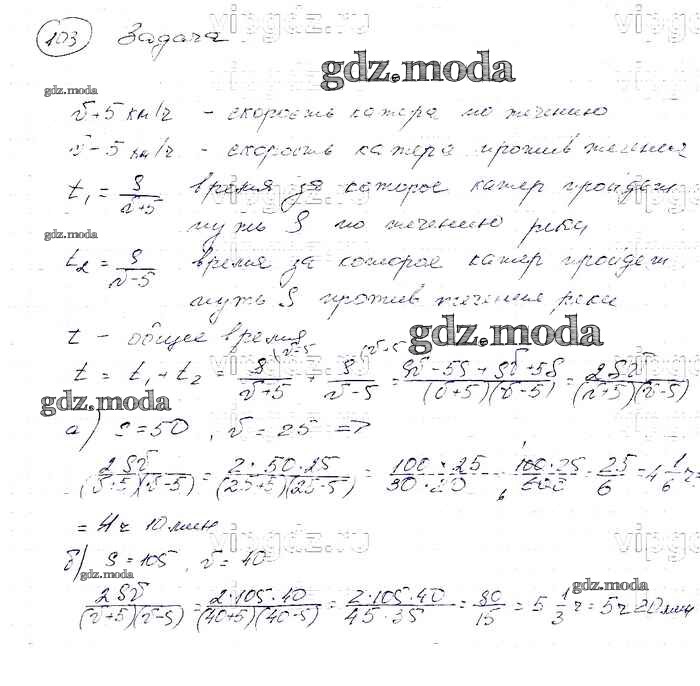 103 Задача
vipgdz.ru
gdz.moda
gdz.moda
v+5 км/ч - скорость катера по течению
v-5 км/ч - скорость катера против течения
t₁ = S/(v+5) время за которое катер пройдет
путь S по течению реки
gdz.moda
t₂ = S/(v-5) время за которое катер пройдет
путь S против течения реки
t - общее время
gdz.moda
t = t₁ + t₂ = S(v-5/(v+5) + S(v+5/(v-5) = (Sv-5S+Sv+5S)/((v+5)(v-5)) = 2Sv/((v+5)(v-5))
gdz.moda
а) S=50, v=25 =>
2Sv/((v+5)(v-5)) = 2·50·25/((25+5)(25-5)) = 100·25/30·20 = 100·25/600 = 25/6 = 4 1/6 ч =
= 4ч 10мин
б) S=105, v=40
gdz.moda
gdz.moda
2Sv/((v+5)(v-5)) = 2·105·40/((40+5)(40-5)) = 2·105·40/45·35 = 80/15 = 5 1/3 ч = 5ч 20мин